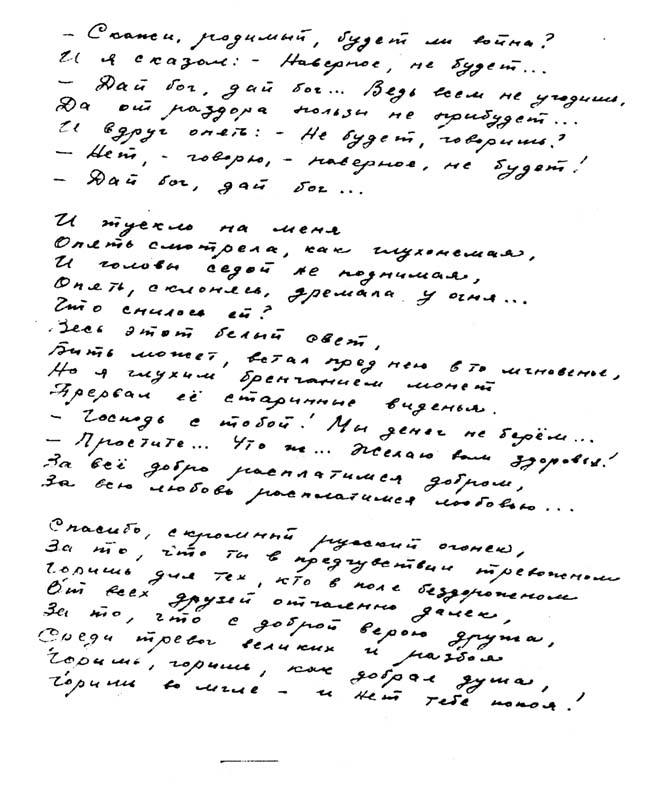 – Скажи, родимый, будет ли война?
И я сказал: – Наверное, не будет...
– Дай бог, дай бог... Ведь всем не угодишь,
Да от раздора пользы не прибудет...
И вдруг опять: – Не будет, говоришь?
– Нет, – говорю, – наверное, не будет!
– Дай бог, дай бог...
И тускло на меня
Опять смотрела, как глухонемая,
И головы седой не поднимая,
Опять, склонясь, дремала у огня...
Что снилось ей?
Весь этот белый свет,
Быть может, встал пред нею в то мгновенье,
Но я глухим бренчанием монет
Прервал её старинные виденья.
– Господь с тобой! Мы денег не берём...
– Простите... Что ж... Желаю вам здоровья!
За всё добро расплатимся добром,
За всю любовь расплатимся любовью...
Спасибо, скромный русский огонек,
За то, что ты в предчувствии тревожном
Горишь для тех, кто в поле бездорожном
От всех друзей отчаянно далек,
За то, что с доброй верою дружа,
Среди тревог великих и разбоя
Горишь, горишь, как добрая душа,
Горишь во мгле – и нет тебе покоя!